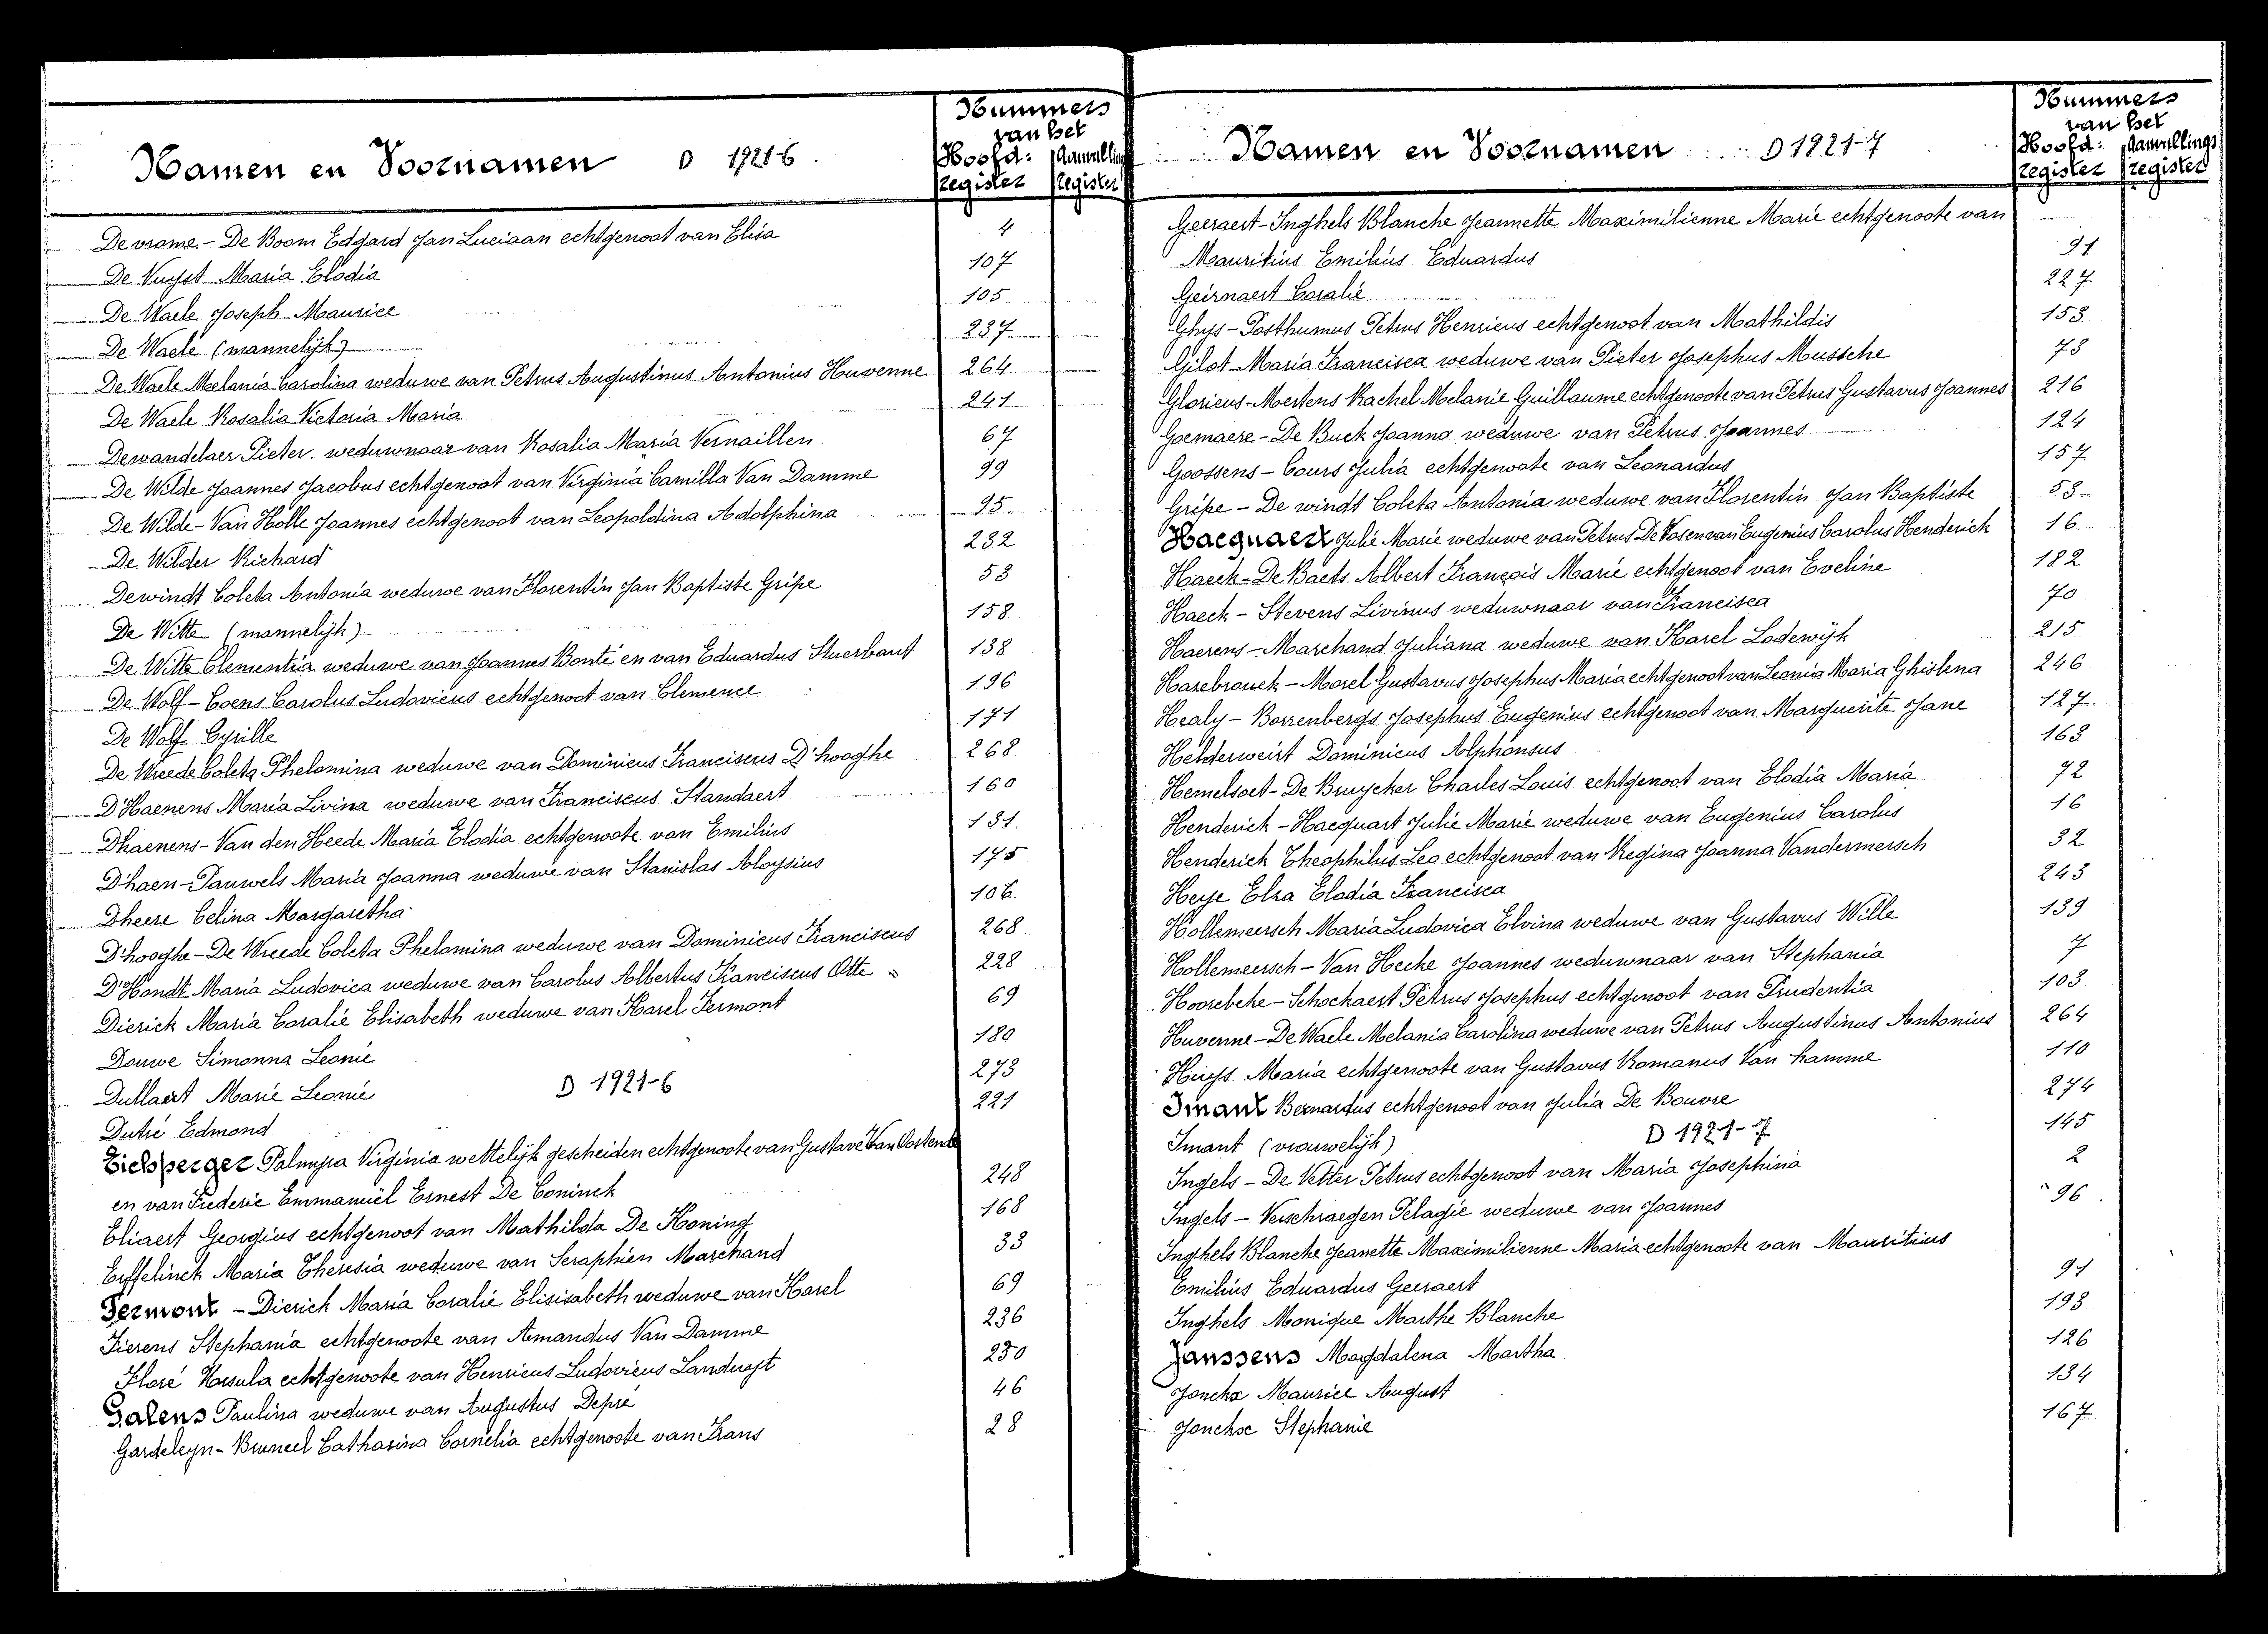 Namen en Voornamen D 1921-6
Nummers
van het
Hoofd: Aanvullings
register register
De vrome - De Boom Edgard Jan Luciaan echtgenoot van Elisa 4
De Nuyst Maria Elodia 107
De Waele Joseph Maurice 105
De Waele (mannelijk) 237
De Waele Melania Carolina weduwe van Petrus Augustinus Antonius Huvenne 264
De Waele Rosalia Victoria Maria 241
Dewandelaer Pieter weduwnaar van Rosalia Maria Vernaillen 67
De Wilde Joannes Jacobus echtgenoot van Virginia Camilla Van Damme 99
De Wilde - Van Holle Joannes echtgenoot van Leopoldina Adolphina 95
De Wilder Richard 232
Dewindt Coleta Antonia weduwe van Florentin Jan Baptiste Gripe 53
De Witte (mannelijk) 158
De Witte Clementia weduwe van Joannes Bonte en van Eduardus Stuerbaut 138
De Wolf - Coens Carolus Ludovicus echtgenoot van Clemence 196
De Wolf Cyrille 171
De Wreede Coleta Phelomina weduwe van Dominicus Franciscus D'hooghe 268
D'Haenens Maria Livina weduwe van Franciscus Standaert 160
Dhaenens - Van den Heede Maria Elodia echtgenoote van Emilius 131
D'haen - Pauwels Maria Joanna weduwe van Stanislas Aloysius 175
Dheere Celina Margaretha 106
D'hooghe - De Wreede Coleta Phelomina weduwe van Dominicus Franciscus 268
D'Hondt Maria Ludovica weduwe van Carolus Albertus Franciscus Otte 228
Dierick Maria Coralie Elisabeth weduwe van Karel Fermont 69
Douwe Simonna Leonie 180
Dullaert Marie Leonie 273
D 1921-6
Dutré Edmond 221
Eichsperger Palmyra Virginia wettelijk gescheiden echtgenoote van Gustave Van Oostende
en van Frederic Emmanuël Ernest De Coninck 248
Eliaert Georgius echtgenoot van Mathilda De Koning 168
Erffelinck Maria Theresia weduwe van Seraphien Marchand 33
Fermont - Dierick Maria Coralie Elisisabeth weduwe van Karel 69
Fierens Stephania echtgenoote van Amandus Van Damme 236
Floré Ursula echtgenoote van Henricus Ludovicus Landuyt 250
Galens Paulina weduwe van Augustus Depré 46
Gardeleyn - Bruneel Catharina Cornelia echtgenoote van Frans 28
Namen en Voornamen D 1921-7
Nummers
van het
Hoofd: Aanvullings
register register
Geeraert - Inghels Blanche Jeannette Maximilienne Marie echtgenoote van
Mauritius Emilius Eduardus 91
Geirnaert Coralie 227
Ghys - Posthumus Petrus Henricus echtgenoot van Mathildis 153
Gilot Maria Francisca weduwe van Pieter Josephus Mussche 73
Glorieus - Mertens Rachel Melanie Guillaume echtgenoote van Petrus Gustavus Joannes 216
Goemaere - De Buck Joanna weduwe van Petrus Joannes 124
Goossens - Cours Julia echtgenoote van Leonardus 157
Gripe - De windt Coleta Antonia weduwe van Florentin Jan Baptiste 53
Hacquaert Julie Marie weduwe van Petrus De Vos en van Eugenius Carolus Henderick 16
Haeck - De Baets Albert François Marie echtgenoot van Eveline 182
Haeck - Stevens Livinus weduwnaar van Francisca 70
Haerens - Marchand Juliana weduwe van Karel Lodewijk 215
Hazebrouck - Morel Gustavus Josephus Maria echtgenoot van Leonia Maria Ghislena 246
Healy - Borrenbergs Josephus Eugenius echtgenoot van Marguerite Jane 127
Helderweirt Dominicus Alphonsus 163
Hemelsoet - De Bruycker Charles Louis echtgenoot van Elodia Maria 72
Henderick - Hacquart Julie Marie weduwe van Eugenius Carolus 16
Henderick Theophilus Leo echtgenoot van Regina Joanna Vandermersch 32
Heye Elza Elodia Francisca 243
Hollemeersch Maria Ludovica Elvina weduwe van Gustavus Wille 139
Hollemeersch - Van Hecke Joannes weduwnaar van Stephania 7
Hoorebeke - Schockaert Petrus Josephus echtgenoot van Prudentia 103
Huvenne - De Waele Melania Carolina weduwe van Petrus Augustinus Antonius 264
Huys Maria echtgenoote van Gustavus Romanus Van hamme 110
Imant Bernardus echtgenoot van Julia De Bouvre 274
D 1921-7
Imant (vrouwelijk) 145
Ingels - De Vetter Petrus echtgenoot van Maria Josephina 2
Ingels - Verschraegen Pelagie weduwe van Joannes 96
Inghels Blanche Jeanette Maximilienne Maria echtgenoote van Mauritius
Emilius Eduardus Geeraert 91
Inghels Monique Marthe Blanche 193
Janssens Magdalena Martha 126
Jonckx Maurice August 134
Jonckx Stephanie 167